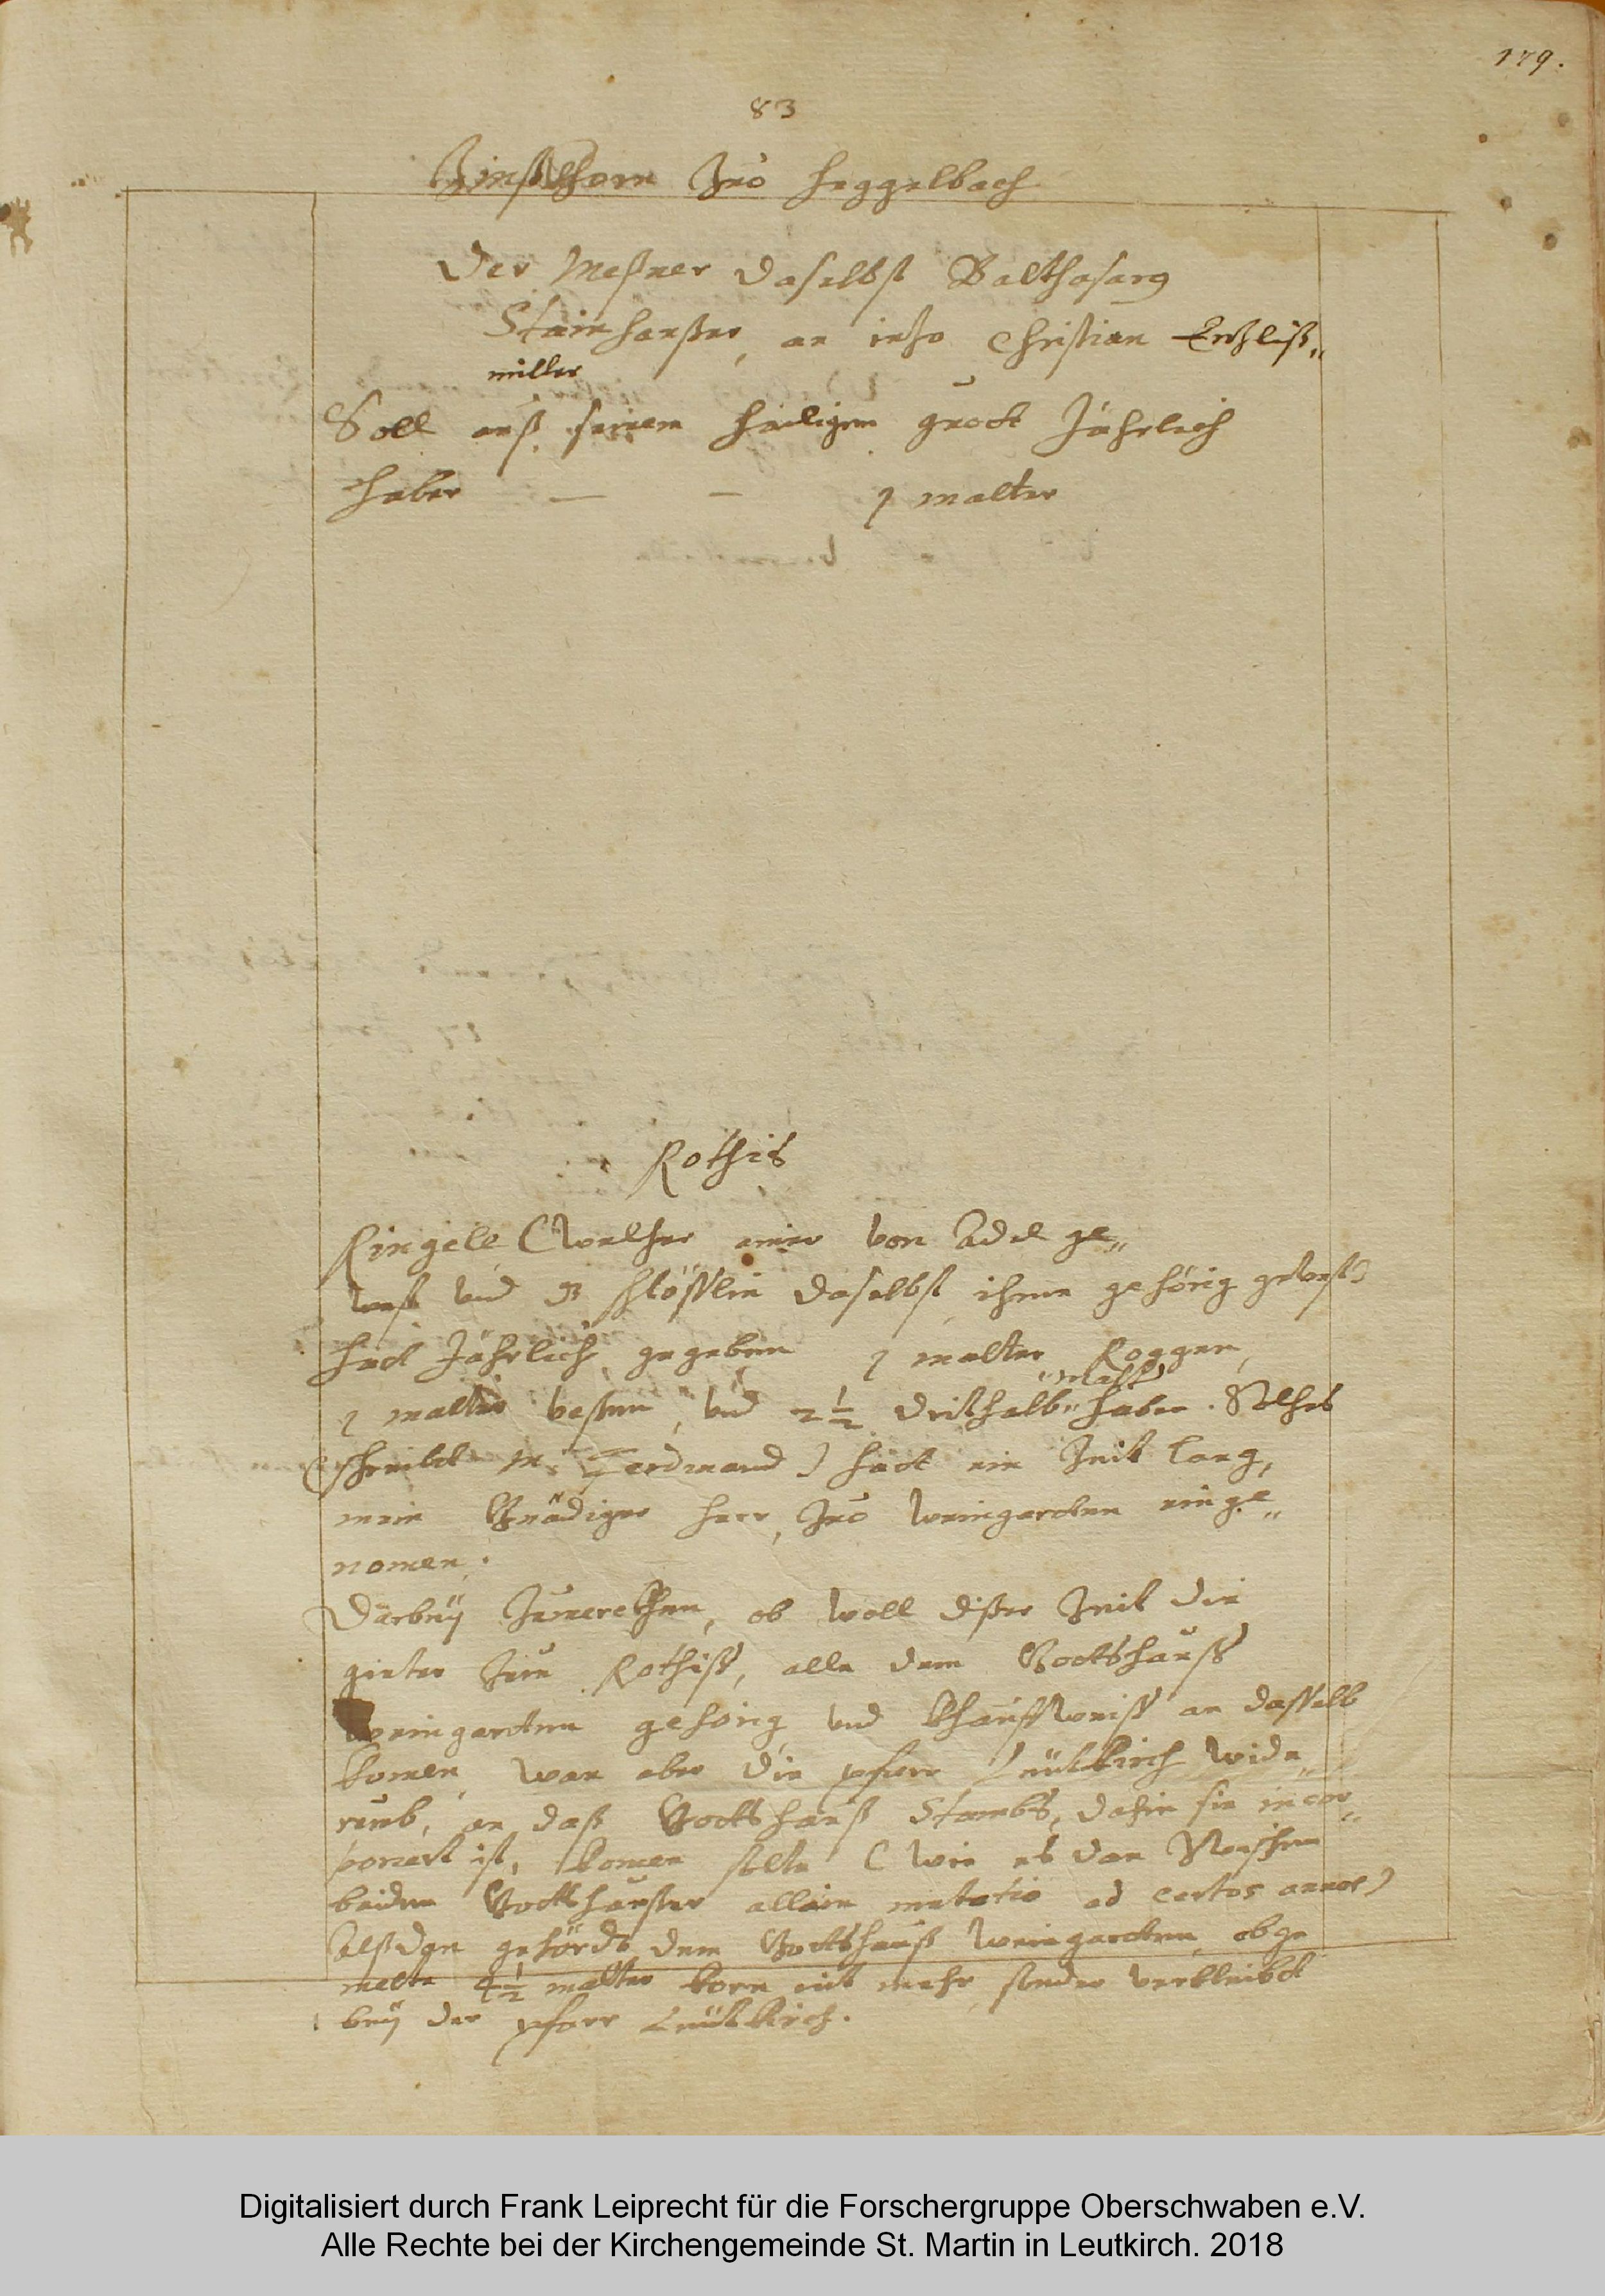 179.
83
Zinßkhorn Zuo Heggelbach
Der Meßner daselbst Balthasarg
Stainhauser, an ietzo Christian
miller
Soll auß seinem heiligen guoth Jährlich
Haber — — 1 malter
Rothis
Ringell (welcher einer von Adel ge„
west und schlösslin daselbst ihme gehörig gewest)
hat Jährlich gegeben 1 malter Roggen,
1 malter vesen, und 2 1/2 drithalb„ malter haber. Solches
(schreibt M. Ferdinand) hat ein Zeit lang,
mein Gnädiger herr, Zuo Weingarten einge„
nomen.
Darbey Zumerckhen, ob woll diser Zeit die
gieter Zum Rothiß, alle dem Gottshauß
Weingarten gehörig und khauffweiß an dasselb
komen, wan aber die pfarr Leutkirch wide„
rumb, an daß Gottshauß Stambs, dahin sie incor„
poriert ist, komen solte (wie es dan Zwischen
beiden Gottsheußer allein mutatio ad certos annos)
Alßdan gehördt dem Gottshauß Weingarten obge
melte 4 1/2 malter korn nit mehr sonder verbleibt
bey der pfarr Leutkirch.
Digitalisiert durch Frank Leiprecht für die Forschergruppe Oberschwaben e.V.
Alle Rechte bei der Kirchengemeinde St. Martin in Leutkirch. 2018